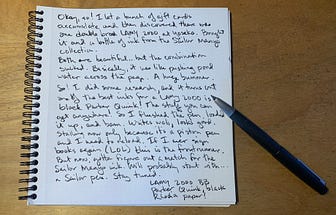 Okay, so! I let a bunch of gift cards
accumulate and then discovered there was
one double broad LAMY 2000 at Yoseka. Bought
it and a bottle of ink from the Sailor Manyo
collection.
Both are beautiful.. but the combination
sucked. Basically, it was like pushing pond
water across the page. A huge bummer.
So! I did some research, and it turns out
one of the best inks for a LAMY 2000 is
black Parker Quink! The stuff you can
get anywhere. So I flushed the pen, loaded
it up, and bam. Writes well, looks good.
Stalling now only because it's a piston pen
and I need to reload. If I ever sign
books again (LOL) this is the frontrunner.
But now, gotta figure out a match for the
Sailor Manyo ink. Will probably start with...
a Sailor pen. Stay tuned.
LAMY 2000 BB
Parker Quink, black
Rhodia paper!